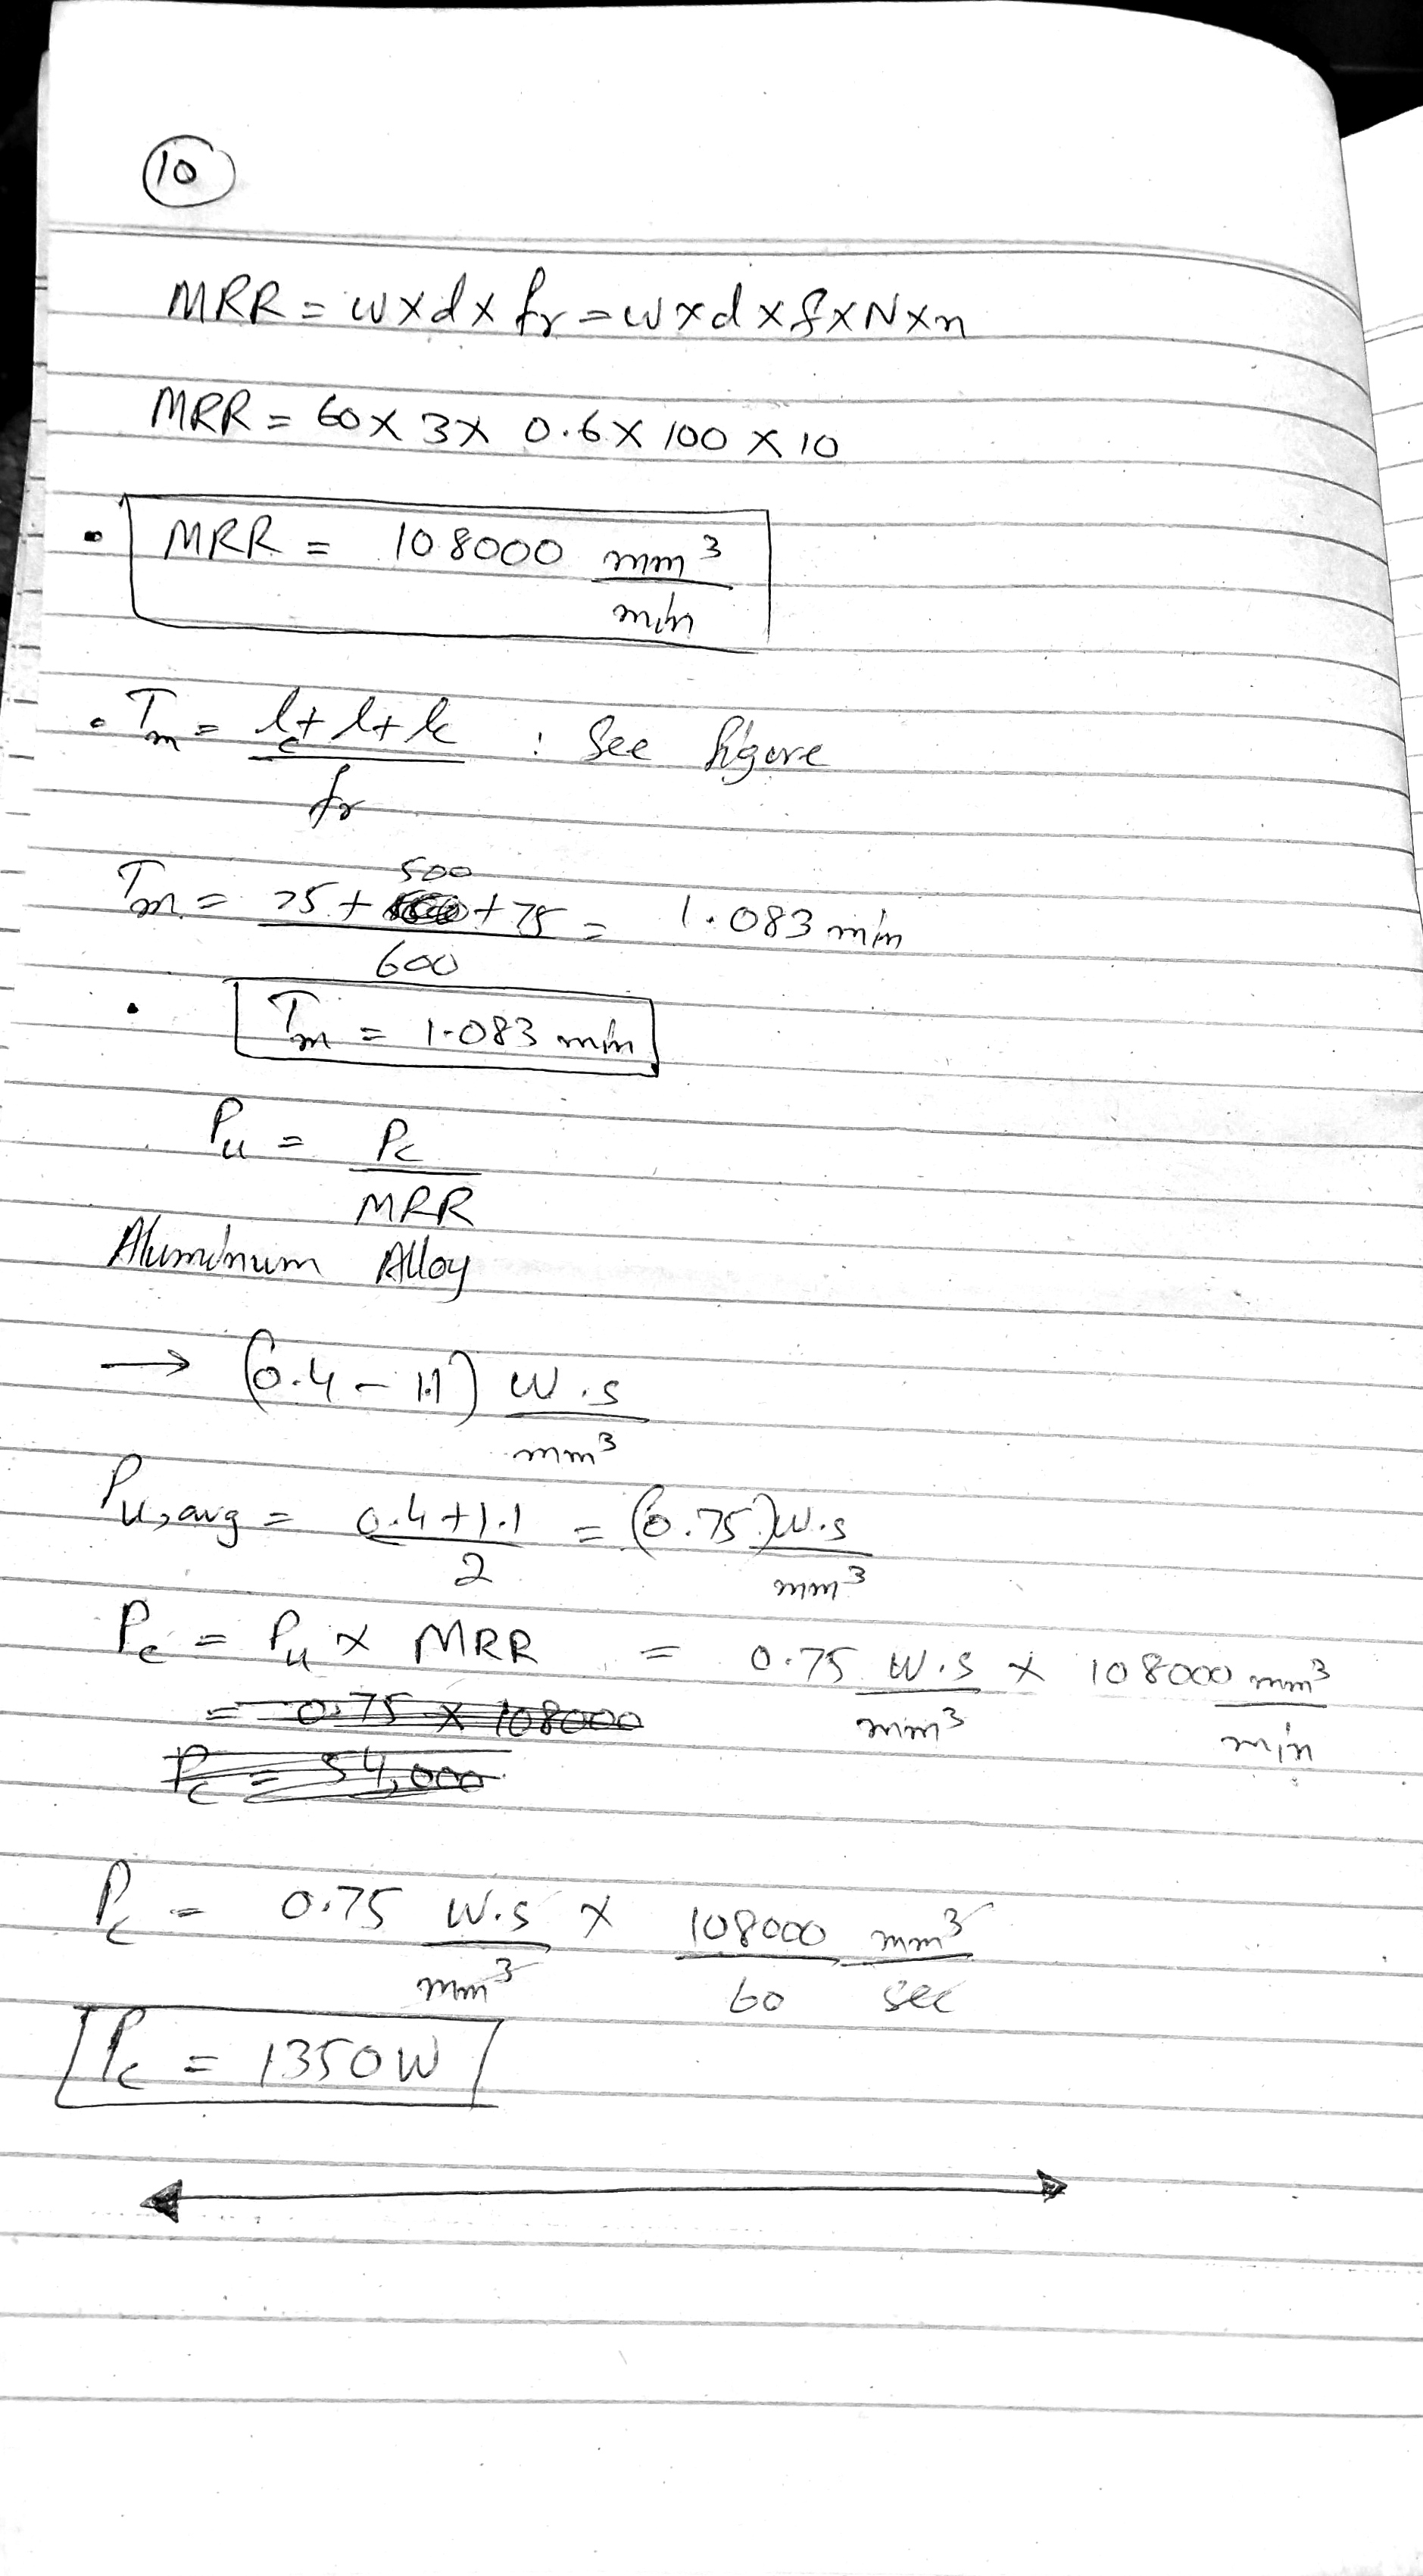 10
MRR = w x d x fr = w x d x f x N x n
MRR = 60 x 3 x 0.6 x 100 x 10
MRR = 108000 mm³/min
Tm = lc + l + lc / fr : See figure
Tm = 75 + 500 + 75 / 600 = 1.083 min
Tm = 1.083 min
Pu = Pc / MRR
Aluminum Alloy
→ (0.4 - 1.1) W.s/mm³
Pu,avg = 0.4 + 1.1 / 2 = (0.75) W.s/mm³
Pc = Pu x MRR = 0.75 W.s/mm³ x 108000 mm³/min
= 0.75 x 108000
Pc = 54,000
Pc = 0.75 W.s/mm³ x 108000/60 mm³/sec
Pc = 1350 W